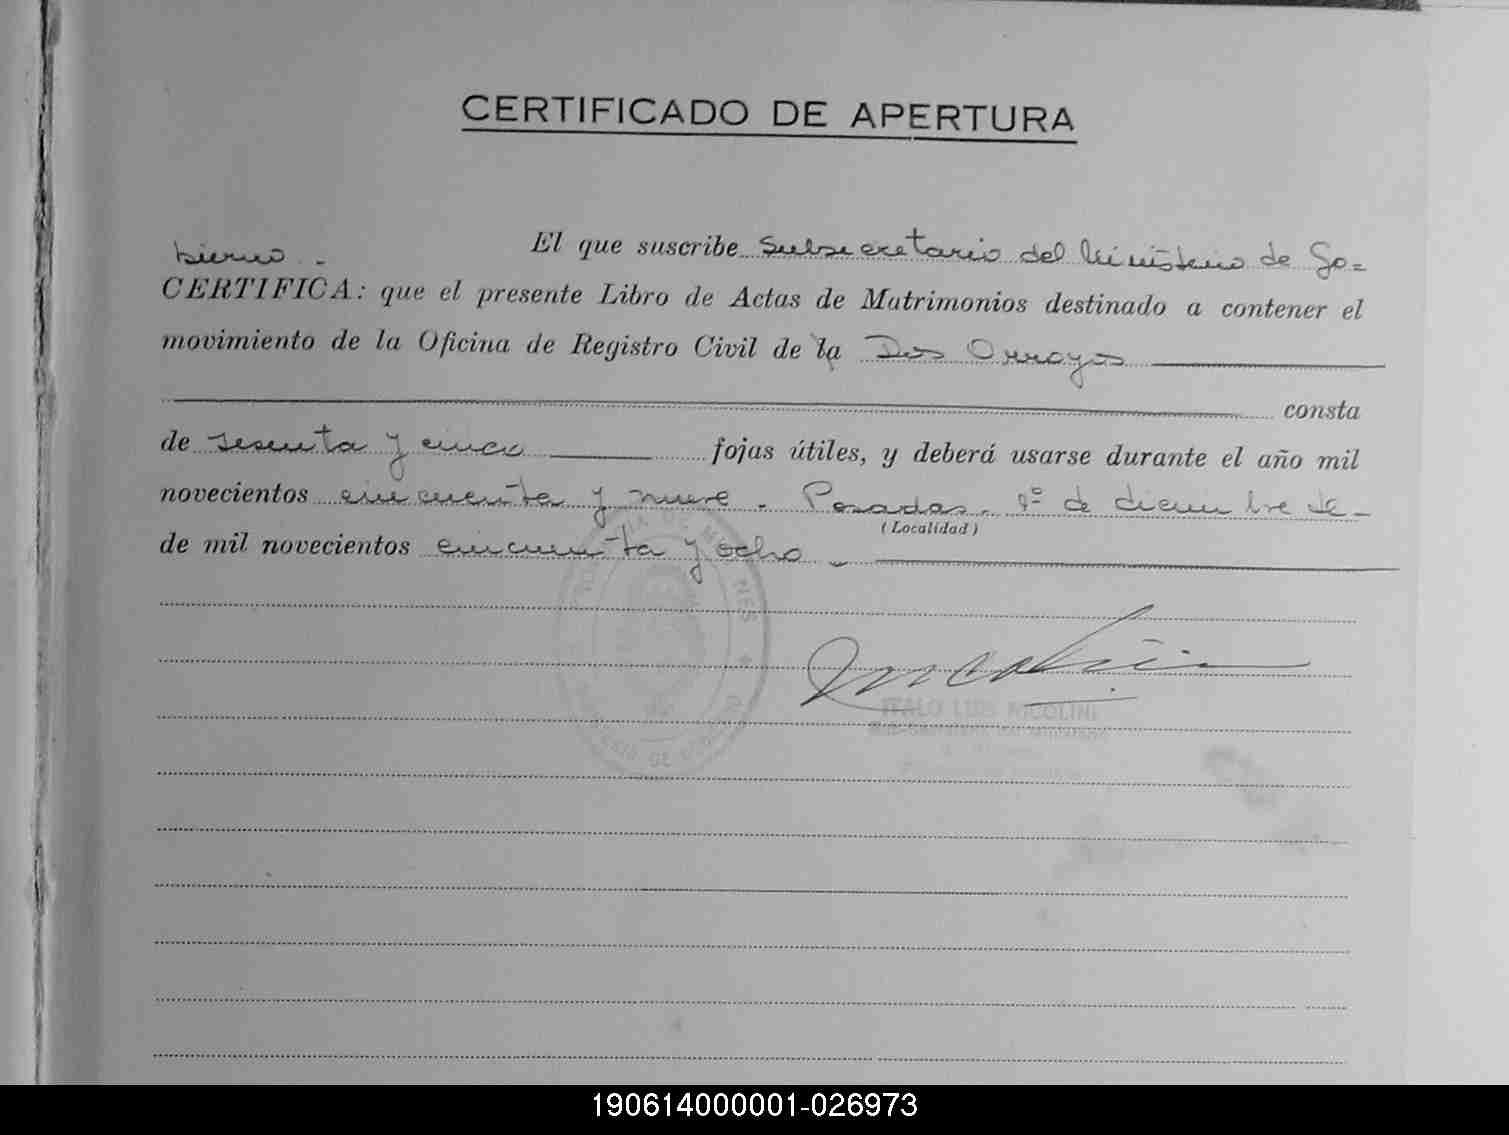 CERTIFICADO DE APERTURA
El que suscribe Subsecretario del Ministerio de Go=
bierno.-
CERTIFICA: que el presente Libro de Actas de Matrimonios destinado a contener el
movimiento de la Oficina de Registro Civil de la Dos Arroyos
consta
de sesenta y cinco fojas útiles, y deberá usarse durante el año mil
novecientos cincuenta y nueve. Posadas, 1º de diciembre de-
(Localidad)
de mil novecientos cincuenta y ocho.-
ITALO LUIS NICOLINI
190614000001-026973